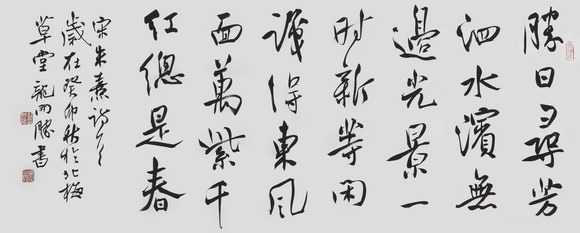 勝日尋芳
泗水濱無
邊光景一
时新等闲
識得東风
面萬紫千
红總是春
宋朱熹诗
歲在癸卯秋於北梅
草堂龍勝書